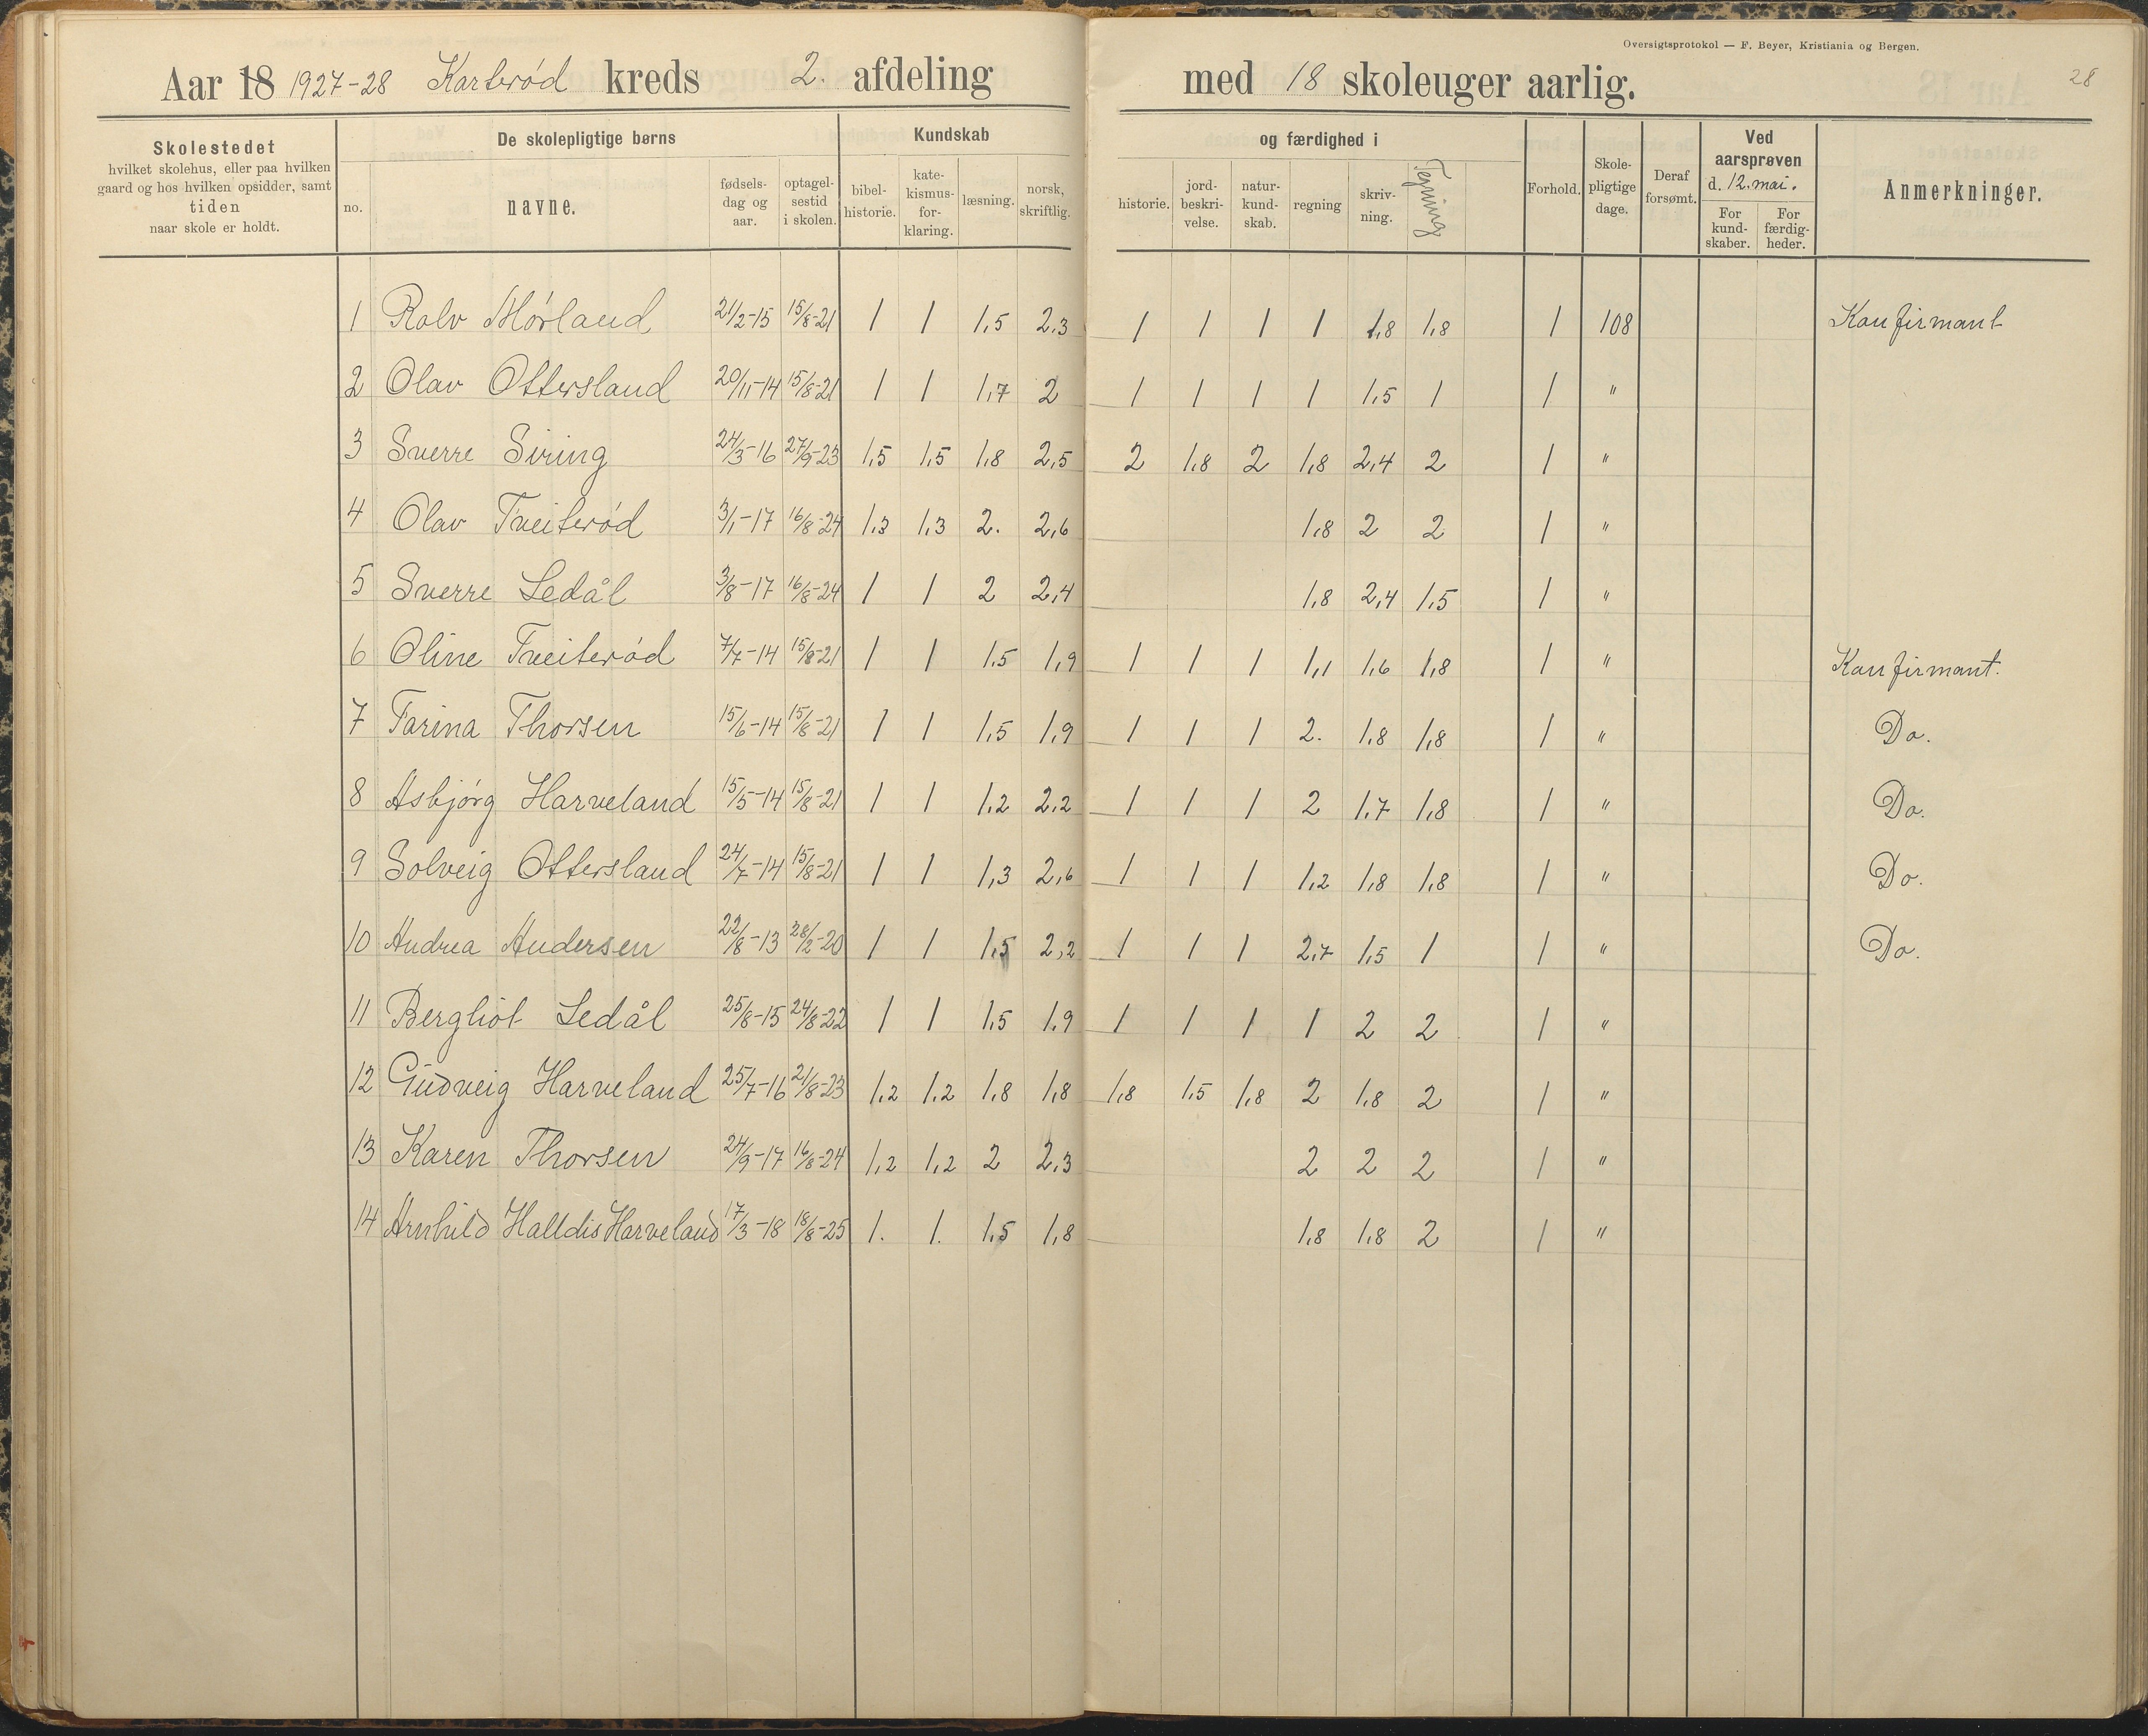 Oversigtsprotokol — F. Beyer, Kristiania og Bergen.
28
Aar 18 1927-28 Karterød kreds 2. afdeling med 18 skoleuger aarlig.
Skolestedet
hvilket skolehus, eller paa hvilken
gaard og hos hvilken opsidder, samt
tiden
naar skole er holdt.
De skolepligtige børns
no.
navne.
fødsels-
dag og
aar.
optagel-
sestid
i skolen.
Kundskab
bibel-
historie.
kate-
kismus-
for-
klaring.
læsning.
norsk,
skriftlig.
og færdighed i
historie.
jord-
beskri-
velse.
natur-
kund-
skab.
regning
skriv-
ning.
Tegning
Forhold.
Skole-
pligtige
dage.
Deraf
forsømt.
Ved
aarsprøven
d. 12. mai.
For
kund-
skaber.
For
færdig-
heder.
Anmerkninger.
1 Rolv Mørland 21/2-15 15/8-21 1 1 1,5 2,3 1 1 1 1 1,8 1,8 1 108 Konfirmant
2 Olav Ottersland 20/11-14 15/8-21 1 1 1,7 2 1 1 1 1 1,5 1 1 "
3 Sverre Siring 24/3-16 27/9-23 1,5 1,5 1,8 2,5 2 1,8 2 1,8 2,4 2 1 "
4 Olav Tveiterød 3/1-17 16/8-24 1,3 1,3 2. 2,6 1,8 2 2 1 "
5 Sverre Ledål 3/8-17 16/8-24 1 1 2 2,4 1,8 2,4 1,5 1 "
6 Oline Tveiterød 7/7-14 15/8-21 1 1 1,5 1,9 1 1 1 1,1 1,6 1,8 1 " Konfirmant.
7 Farina Thorsen 15/6-14 15/8-21 1 1 1,5 1,9 1 1 1 2. 1,8 1,8 1 " Do.
8 Asbjørg Harveland 15/5-14 15/8-21 1 1 1,2 2,2 1 1 1 2 1,7 1,8 1 " Do.
9 Solveig Ottersland 24/7-14 15/8-21 1 1 1,3 2,6 1 1 1 1,2 1,8 1,8 1 " Do.
10 Andrea Andersen 22/8-13 28/2-20 1 1 1,5 2,2 1 1 1 2,7 1,5 1 1 " Do.
11 Bergliot Ledål 25/8-15 24/8-22 1 1 1,5 1,9 1 1 1 1 2 2 1 "
12 Gudveig Harveland 25/7-16 21/8-23 1,2 1,2 1,8 1,8 1,8 1,5 1,8 2 1,8 2 1 "
13 Karen Thorsen 24/9-17 16/8-24 1,2 1,2 2 2,3 2 2 2 1 "
14 Arnhild Halldis Harveland 17/3-18 18/8-25 1. 1. 1,5 1,8 1,8 1,8 2 1 "